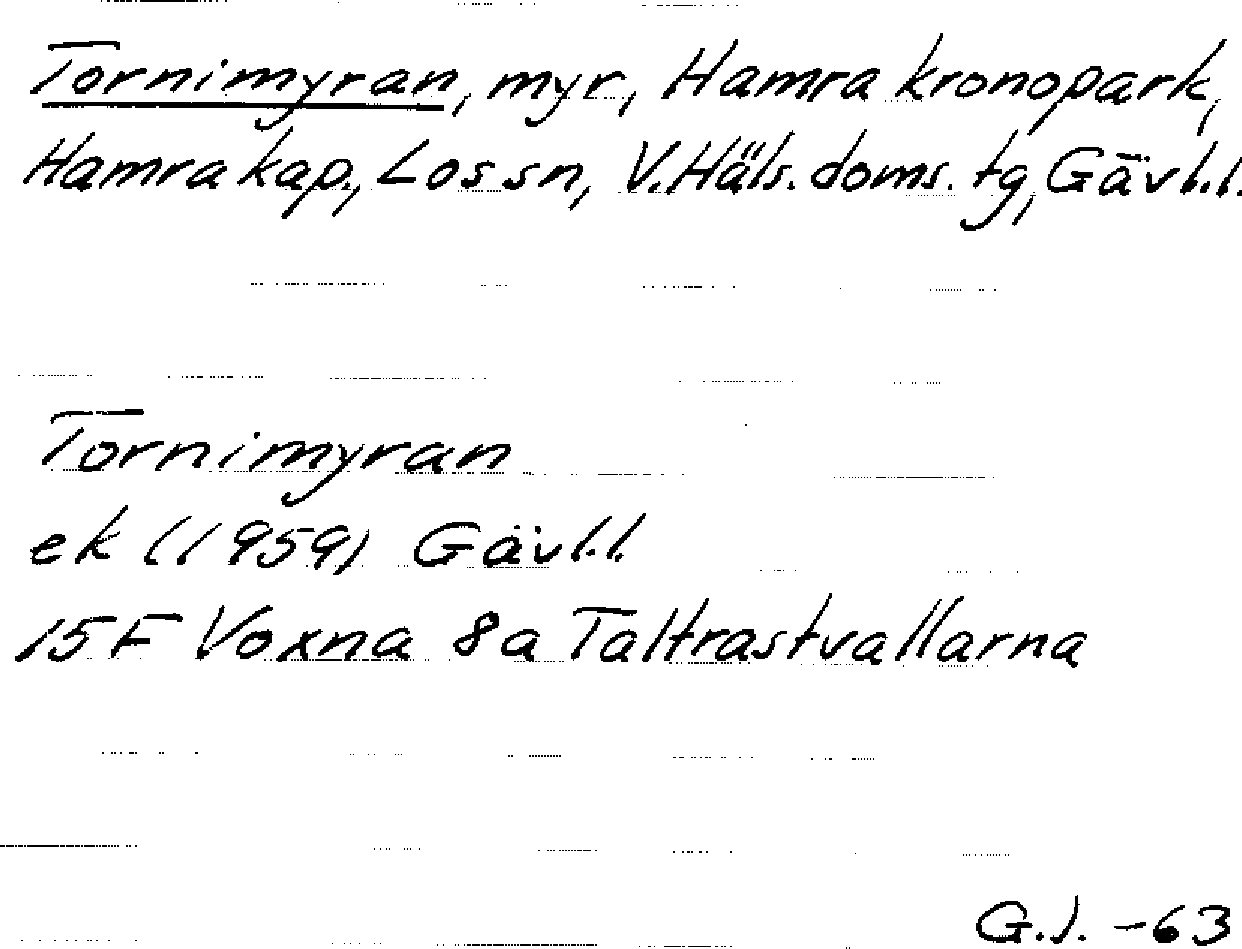 Tornimyran, myr, Hamra kronopark,
Hamra kap., Los sn, V. Häls. doms. tg, Gävl.l.
Tornimyran
ek (1959) Gävl.l.
15F Voxna 8a Taltrastvallarna
G.J. -63